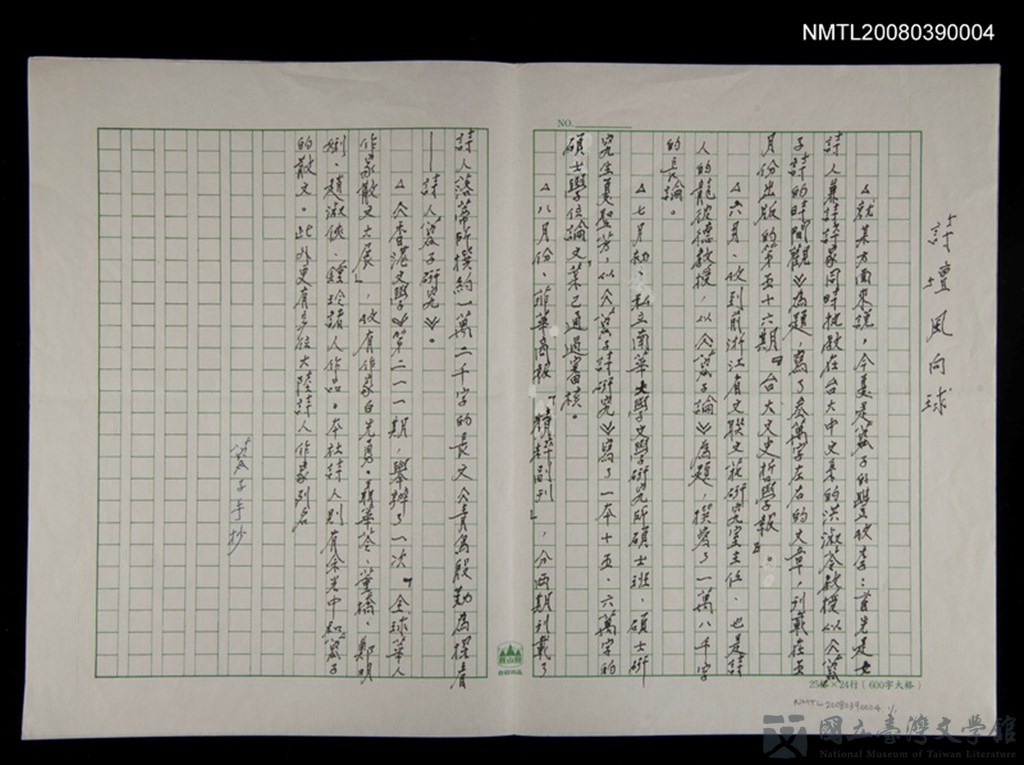 NMTL20080390004
NO.
詩壇風向球
△就某方面來說，今夏是蓉子的豐收季：首先是女
詩人兼詩評家同時執教在台大中文系的洪淑苓教授以《蓉
子詩的時間觀》為題，寫了叁萬字左右的文章，刊載在五
月份出版的第五十六期『台大文史哲學報』。
△六月、收到前浙江省文聯文藝研究室主任、也是詩
人的龍彼德教授，以《蓉子論》為題，撰寫了一萬八千字
的長論。
△七月初、私立南華大學文學研究所碩士班、碩士研
究生夏聖芳，以《蓉子詩研究》寫了一本十五、六萬字的
碩士學位論文，業已通過審核。
△八月份、菲華商報『精粹副刊』，分兩期刊載了
詩人落蒂所撰約一萬二千字的長文《青鳥殷勤為探看
——詩人蓉子研究》。
△《香港文學》第二一一期，舉辦了一次『全球華人
作家散文大展』，收有作家白先勇、聶華苓、董橋、鄭明
娳、趙淑俠、鍾玲諸人作品。本社詩人則有余光中和蓉子
的散文。此外更有多位大陸詩人作家列名
蓉子手抄
25×24行（600字大格）
NMTL20080390004 1/1
國立臺灣文學館
National Museum of Taiwan Literature